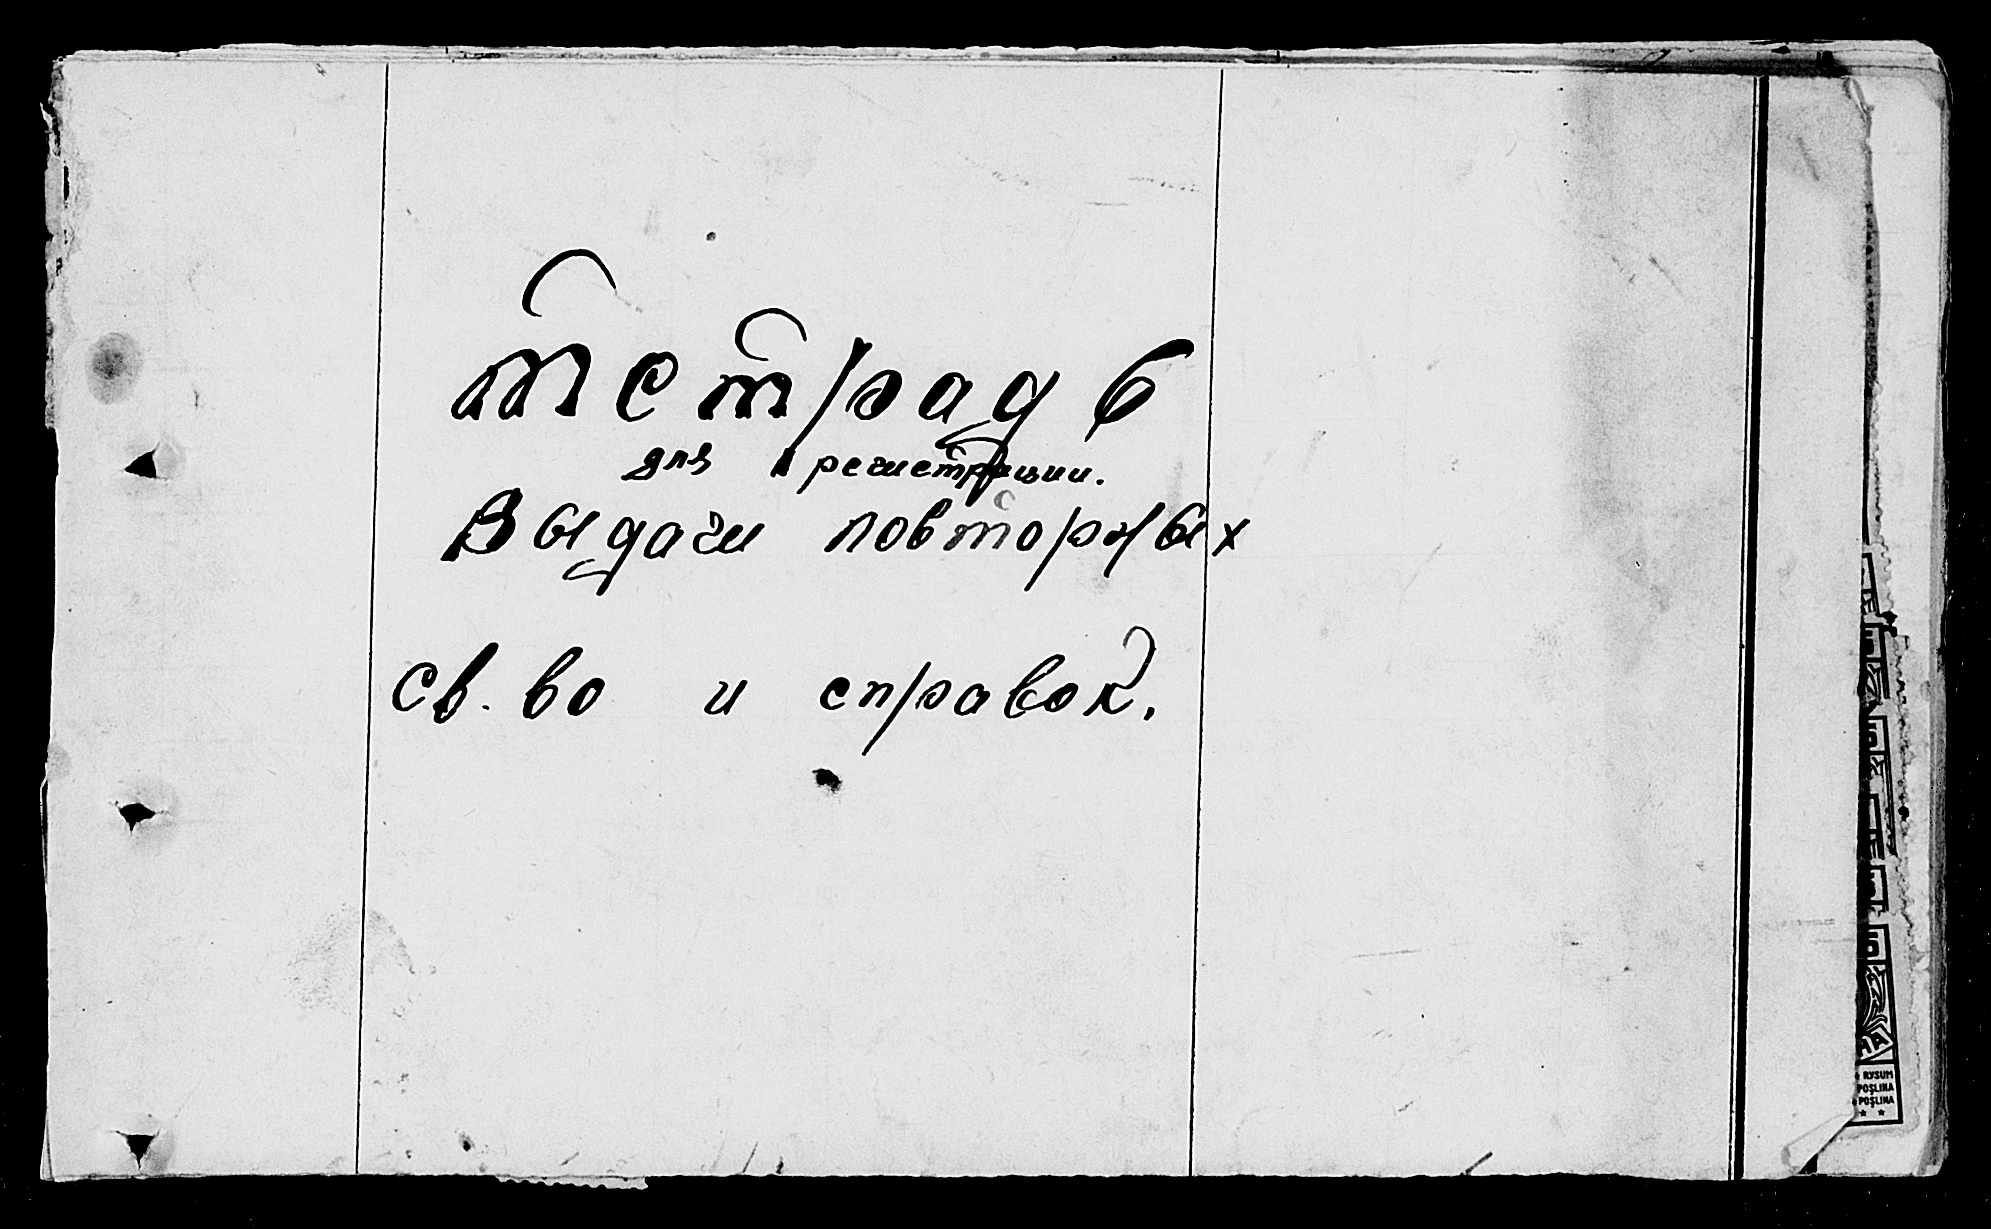 Тетрадь
для регистрации.
Выдачи повторных
св. во и справок.
RYSUM
POŞLINA
POŞLINA